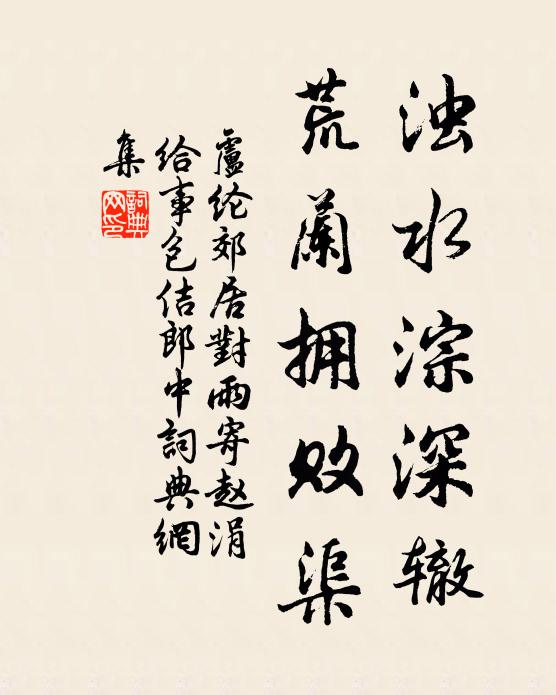 浊水淙深辙
荒兰拥败渠
盧纶郊居對雨寄赵涓
给事包佶郎中詞典網
集
詞典网印